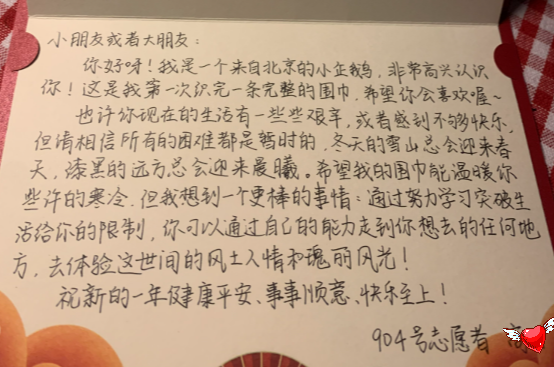 小朋友或者大朋友：
你好呀！我是一个来自北京的小企鹅，非常高兴认识
你！这是我第一次织完一条完整的围巾，希望你会喜欢喔~
也许你现在的生活有一些些艰辛，或者感到不够快乐，
但请相信所有的困难都是暂时的，冬天的雪山总会迎来春
天，漆黑的远方总会迎来晨曦。希望我的围巾能温暖你
些许的寒冷，但我想到一个更棒的事情：通过努力学习突破生
活给你的限制，你可以通过自己的能力走到你想去的任何地
方，去体验这世间的风土人情和瑰丽风光！
祝新的一年健康平安、事事顺意、快乐至上！
904号志愿者